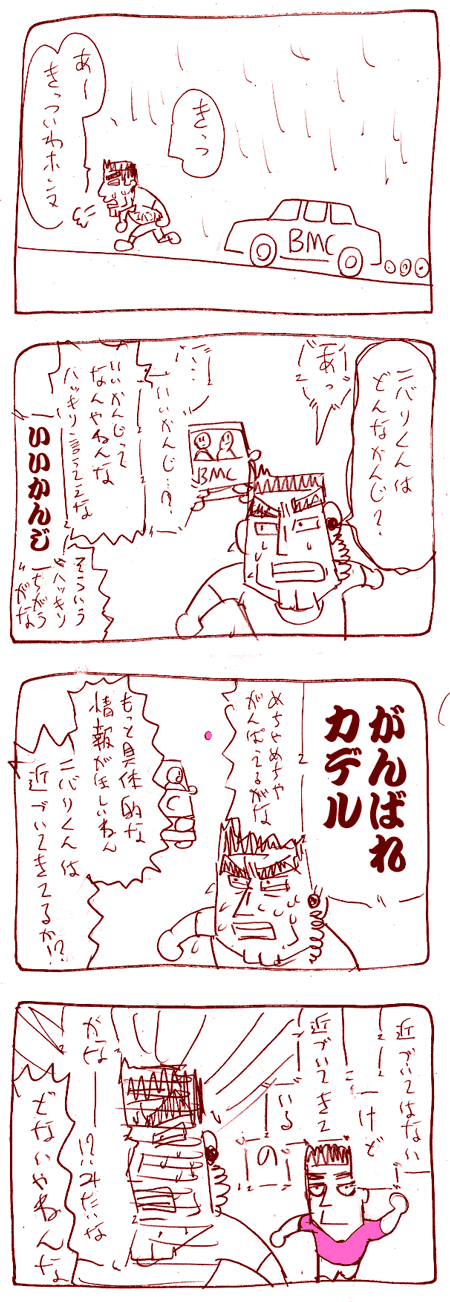 きっつ
あー
きっついわホンマ
BMC
ニバリくんは
どんなかんじ？
あっ
バ…
いいかんじ…？
BMC
いいかんじって
なんやねんな
ハッキリ言うてえな
いいかんじ
そういう
"ハッキリ"
ちがう
がな
がんばれ
カデル
めちゃめちゃ
がんばってるがな
もっと具体的な
情報がほしいねん
ニバリくんは
近づいてきてるか!?
近づいてはない
けど
近づいてきて
いる
の
がな
!?みたいな
どないやねんな